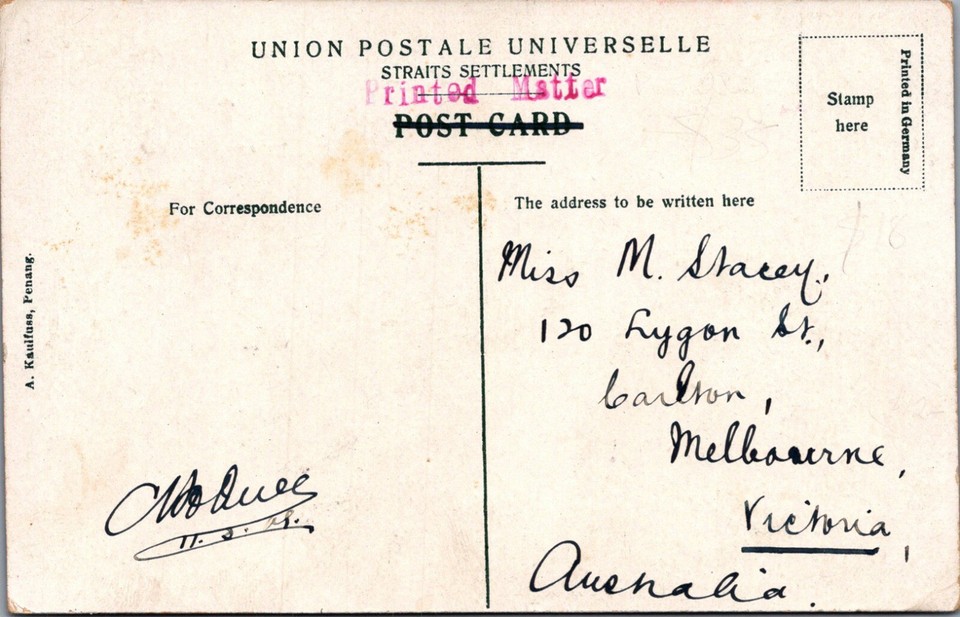 UNION POSTALE UNIVERSELLE
STRAITS SETTLEMENTS
Printed Matter
POST CARD
Stamp
here
Printed in Germany
For Correspondence
The address to be written here
A. Kaulfuss, Penang.
Miss M. Stacey,
120 Lygon St.,
Carlton,
Melbourne,
Victoria,
Australia.